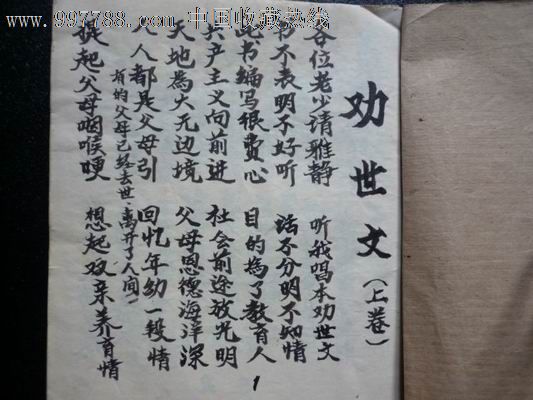 www.997788.com 中国收藏热线
劝世文(上卷)
各位老少请雅静 听我唱本劝世文
书不表明不好听 话不分明不知情
此书编写很费心 目的為了教育人
共产主义向前进 社会前途放光明
天地為大无边境 父母恩德海洋深
人人都是父母引 回忆年幼一段情
有的父母已经去世·离开了人间
提起父母咽喉哽 想起双亲养育情
1